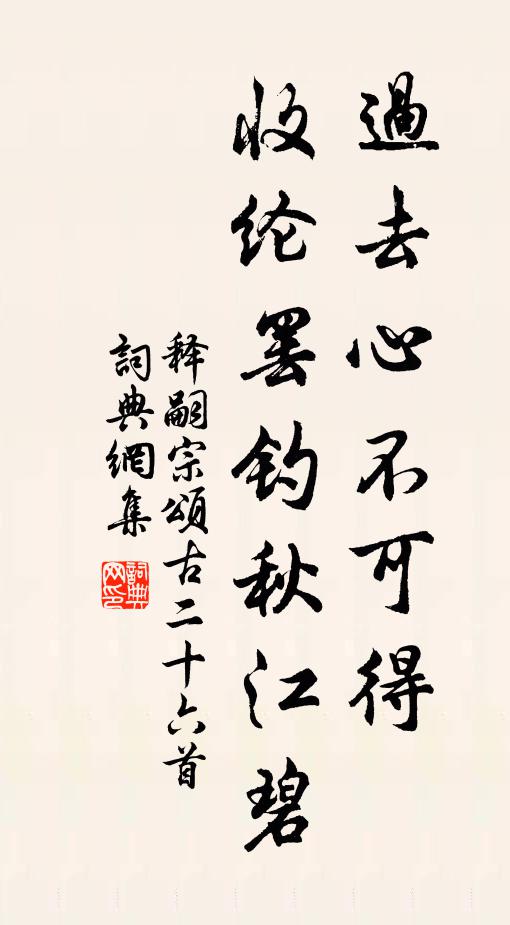 過去心不可得
收纶罢钓秋江碧
释嗣宗頌古二十六首
詞典網集
詞典网印